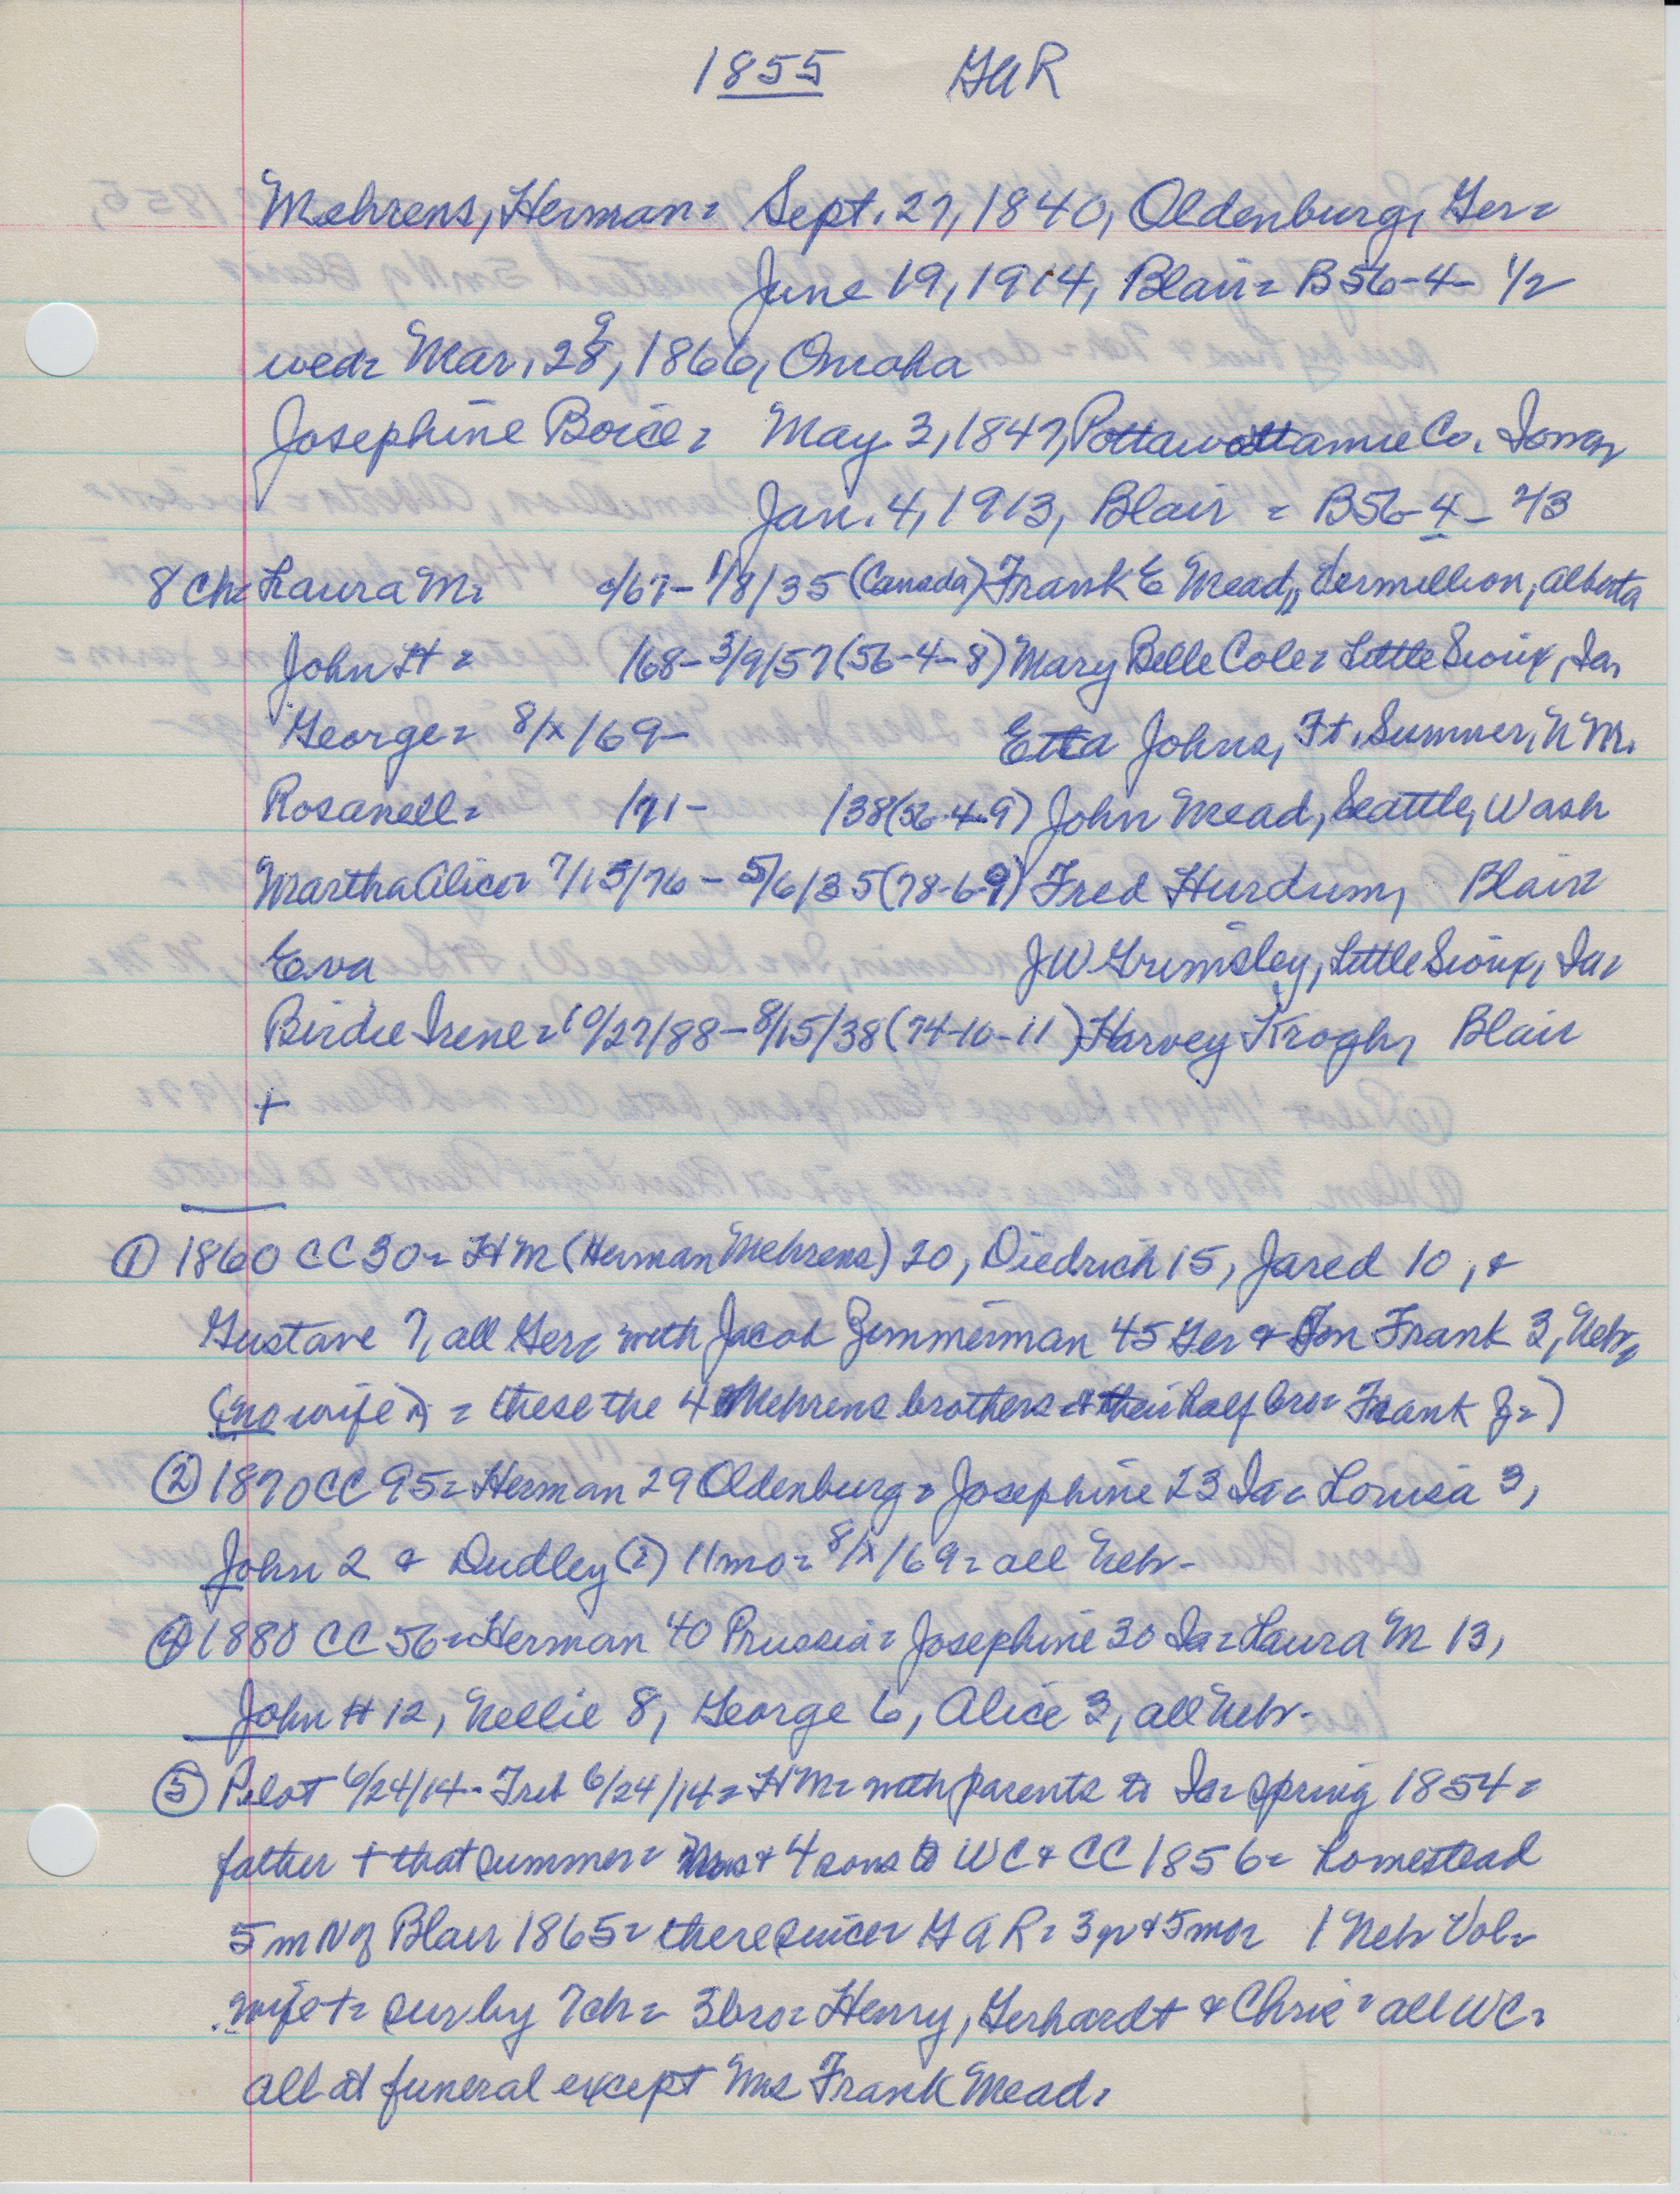 1855 GAR
Mehrens, Herman= Sept. 27, 1840, Oldenburg, Ger=
June 19, 1914, Blair= B56-4- 1/2
wed= Mar. 28, 9 1866, Omaha
Josephine Boice= May 3, 1847, Pottawattamie Co. Iowa,
Jan. 4, 1913, Blair = B56-4-
8 Ch= Laura M= /67- 1/8/35 (Canada) Frank E Mead,, Vermillion, Alberta
John H= /68- 3/9/57 (56-4-8) Mary Belle Cole= Little Sioux, Ia,
George= 8/x/69- Etta Johns, Ft. Sumner, N M.
Rosanell= /71- /38 (56-4-9) John Mead, Seattle, Wash
Martha Alice= 7/13/76 - 5/6/35 (78-6-9) Fred Hurdum, Blair=
Eva JW Grimsley, Little Sioux, Ia=
Birdie Irene= 10/27/88- 8/15/38 (74-10-11) Harvey Krogh, Blair
+
① 1860 CC 30= HM (Herman Mehrens) 20, Diedrich 15, Jared 10, &
Gustave 7, all Ger= with Jacob Zimmerman 45 Ger & Son Frank 3, Nebr,
(no wife) = these the 4 Mehrens brothers & their half bro= Frank Z=)
② 1870 CC 95= Herman 29 Oldenburg= Josephine 23 Ia= Louisa 3,
John 2 & Dudley (?) 11mo= 8/x/69= all Nebr-
④ 1880 CC 56= Herman 40 Prussia= Josephine 30 Ia= Laura M 13,
John H 12, Nellie 8, George 6, Alice 3, all Nebr-
⑤ Pilot 6/24/14- Trib 6/24/14= HM= with parents to Ia= spring 1854=
father + that summer= Mrs & 4 sons to WC & CC 1856= homestead
5 m N of Blair 1865= there since= GAR= 3 yr & 5 mo= 1 Neb Vol=
wife += sur by 7 ch= 3 bro= Henry, Gerhardt & Chris= all WC=
all at funeral except Mrs Frank Mead=